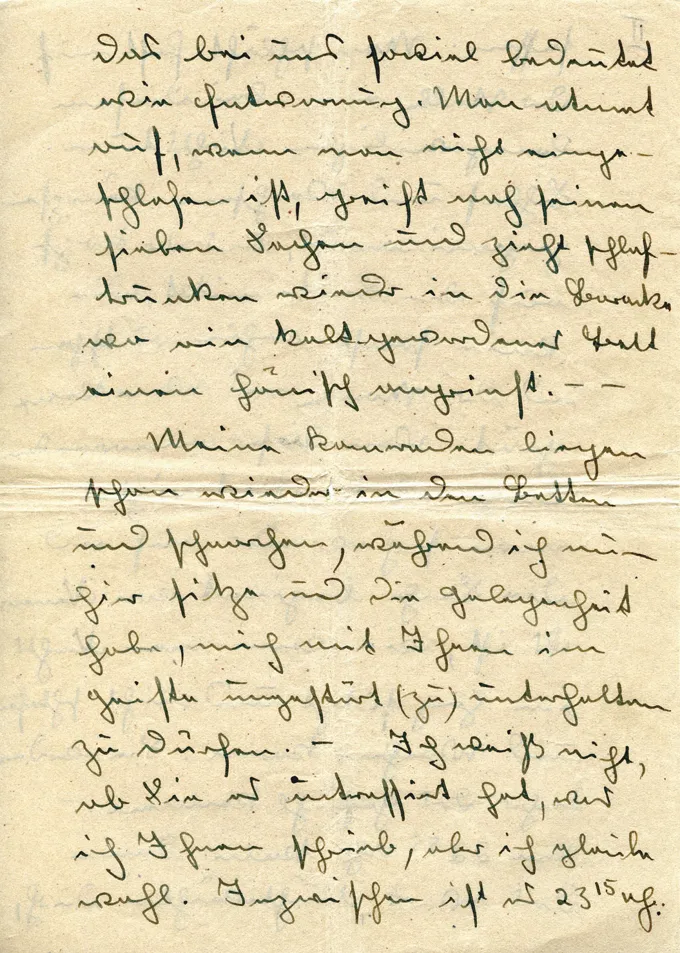 das bei uns soviel bedeutet
wie Entwarnung. Man atmet
auf, wenn man nicht einge-
schlafen ist, greift nach seinen
sieben Sachen und zieht schlaf-
trunken wieder in die Baracke
wo ein kaltgewordenes Bett
einen hönisch angrinst. – –
Meine Kameraden liegen
schon wieder in den Betten
und schnarchen, während ich nu–
hier sitze und die Gelegenheit
habe, mich mit Ihnen im
Geiste ungestört (zu) unterhalten
zu dürfen. – Ich weiß nicht,
ob Sie es interessiert hat, was
ich Ihnen schrieb, aber ich glaube
wohl. Inzwischen ist es 23 15 Uh.: